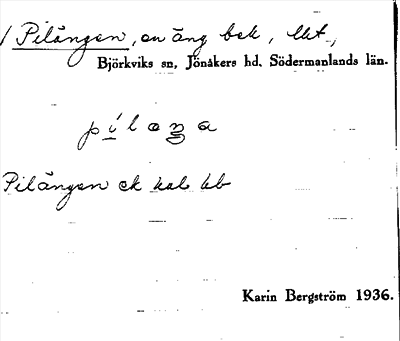 Pilängen, en äng bek,
Björkviks sn, Jönåkers hd. Södermanlands län.
Pilängen ek kal kb
Karin Bergström 1936.